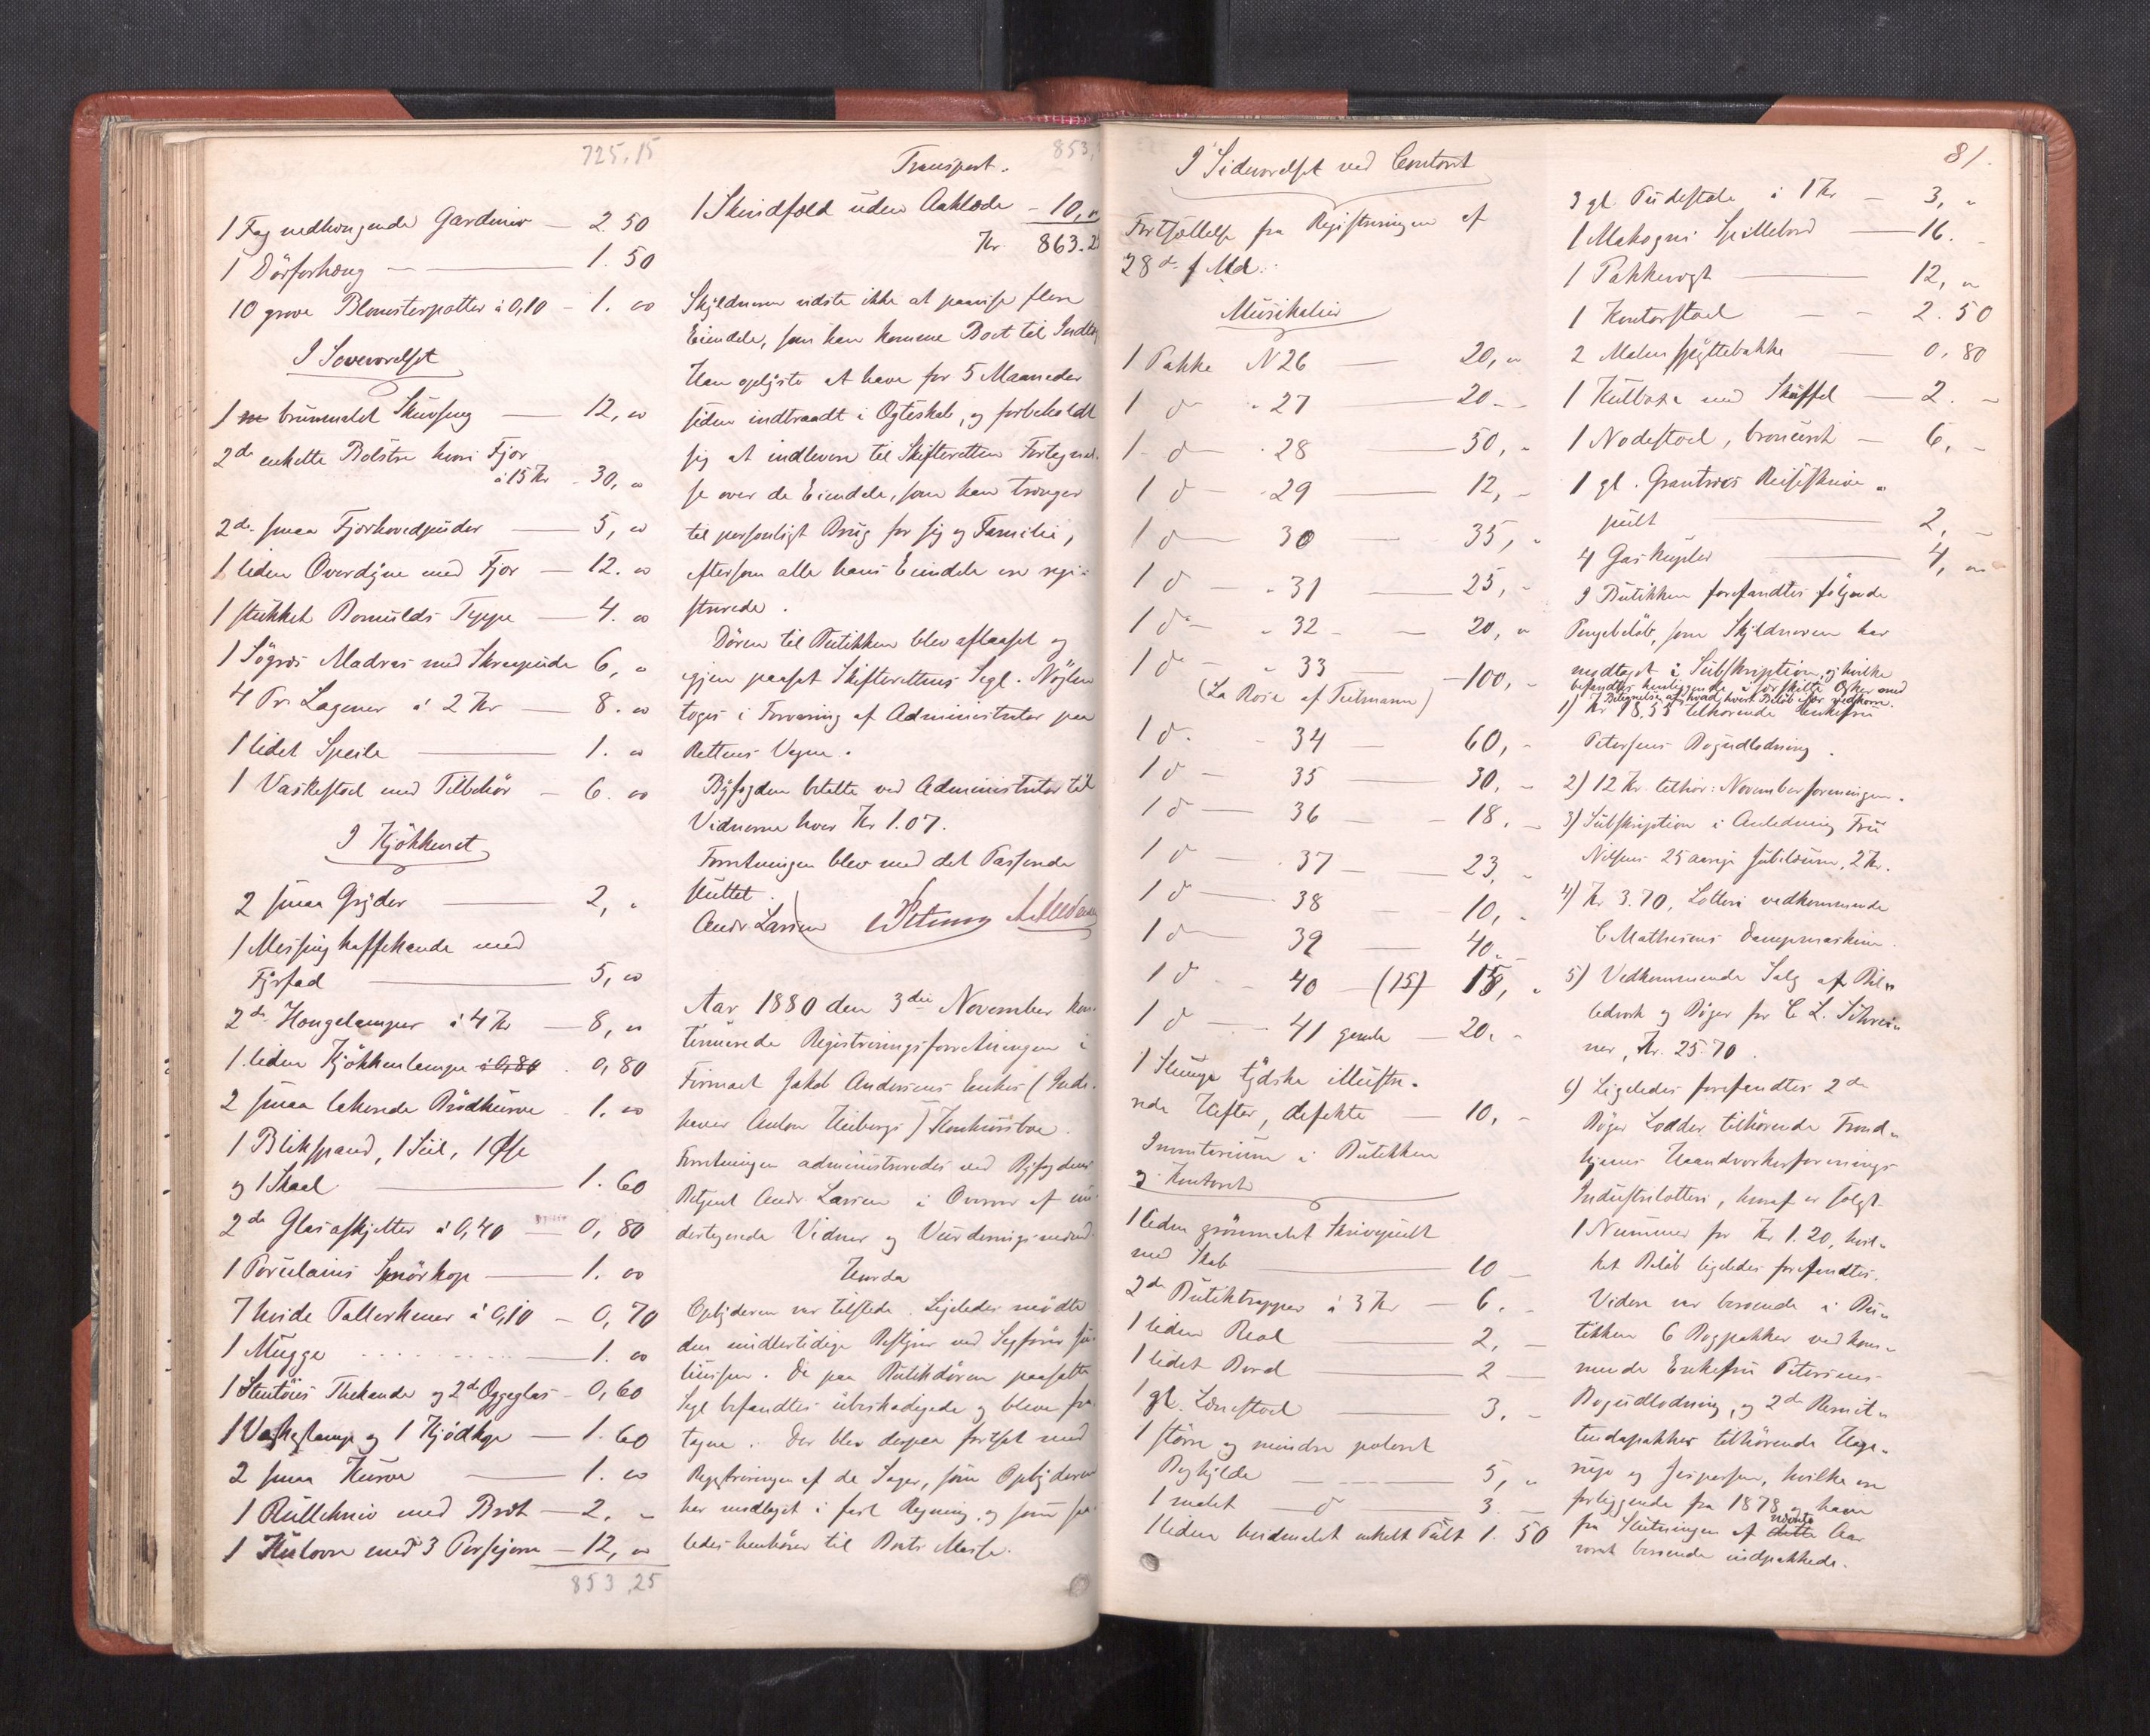 725,15
1 Fag nedhængende Gardiner — 2.50
1 Dörforhæng — 1.50
10 grove Blomsterpotter à 0,10 — 1. 00
I Soveværelset
1 brunmalet Skuvseng — 12, 00
2de enkelte Bolstre hvori Fjær
à 15 Kr - 30, "
2de smaa Fjærhovedpuder — 5, 00
1 liden Overdyne med Fjær — 12. 00
1 stukket Bomulds Teppe — 4. 00
1 Sögræs Madras med Skraapude 6, "
4 Pr. Lagener à 2 Kr — 8. 00
1 lidet Speile — 1. 00
1 Vaskestol med Tilbehör — 6. 00
I Kjökkenet
2 smaa Gryder — 2, "
1 Messing kaffekande med
Fyrfad — 5, 00
2de Hængelamper à 4 Kr — 8, 00
1 liden Kjökkenlampe à 0,80 . 0,80
2 smaa lakerede Brödkurve - 1. 00
1 Blikspand, 1 Siil, 1 Øse
og 1 Skaal — 1. 60
2de Glasasjetter à 0,40 — 0, 80
1 Porcelains Smörkop — 1. 00
7 hvide Tallerkener à 0,10 — 0, 70
1 Mugge — 1. 00
1 Stentöies Thekande og 2de Æggeglas - 0,60
1 Vægelampe og 1 Kjödkop — 1. 60
2 smaa Kurve — 1. 00
1 Rulleknive med Bræt — 2. "
1 Kulovn med 3 Porsjern — 12, 00
853,25
Transport. 853,
1 Skindfæld uden Aaklæde - 10, "
Kr. 863.2
Skyldneren vidste ikke at paavise flere
Eiendele, som kan komme Boet til Indtægt
Han oplyste at have for 5 Maaneder
siden indtraadt i Ægteskab, og forbeholdt
sig at indlevere til Skifteretten Fortegnel-
se over de Eiendele, som han trænger
til personligt Brug for sig og Familie,
eftersom alle hans Eiendele ere regi-
strerede.
Dören til Butikken blev aflaaset og
igjen paasat Skifterettens Segl. Nöglen
toges i Forvaring af Administrator paa
Rettens Vegne.
Byfogden betalte ved Administrator til
Vidnerne hver Kr 1.07.
Forretningen blev med det Passerede
sluttet.
Andr Larsen
Aar 1880 den 3die November kon-
tinuerede Registreringsforretningen i
Firmaet Jakob Andersens Enkes (Inde-
haver Anton Heibergs) Konkursboe.
Forretningen administreredes ved Byfogdens
Betjent Andr Larsen i Overvær af un-
dertegnede Vidner og Vurderingsmænd.
Hvorda
Opbyderen var tilstede. Ligeledes mödte
den midlertidige Bestyrer ved Sagförer
De paa Butikdören paasatte
Segl befandtes ubeskadigede og bleve fra-
tagne. Der blev derpaa fortsat med
Registreringen af de Sager, som Opbyderen
har modtaget i fast Regning, og som saa-
ledes henhörer til Boets Masse.
81.
I Sideværelset ved Contoret
Fortsættelse fra Registreringen af
28de f. Md.
Musikalier
1 Pakke N 26 — 20, "
1 do " 27 — 20 -
1 do " 28 — 50, "
1 do " 29 — 12, -
1 do 30 — 35, "
1 do " 31 — 25, "
1 do " 32 — 20, "
1 do " 33 — 100, -
(La Rose af Tutmann)
1 do " 34 — 60, -
1 do 35 — 30, -
1 do 36 — 18, -
1 do " 37 — 23, "
1 do 38 — 10, "
1 do 39 — 40. -
1 do " 40 — (15) 15, "
1 do 41 gamle — 20. -
1 Slump tydske illustre-
rede Hefter, defekte — 10, -
Inventarium i Butikken
og Kontoret
1 liden grönmalet Skrivepult
med Skab — 10 -
2de Butiktrapper à 3 Kr — 6. -
1 liden Reol — 2, -
1 lidet Bord — 2 -
1 gl. Lænestol — 3, -
1 större og mindre poleret
Boghylde — 5, "
1 malet do — 3. -
1 liden hvidmalet enkelt Pult 1. 50
3 gl. Pudestole à 1 Kr — 3, "
1 Mahogni Spillebord — 16. -
1 Pakkevægt — 12, "
1 Kontorstol — 2. 50
2 Malm spyttebakke — 0, 80
1 Kulboxe med Skuffel — 2. -
1 Nodestol, bronceret — 6, -
1 gl. Grantræs Reiseskrive-
pult — 2, -
4 Gaskupler — 4, "
I Butikken forefandtes fölgende
Pengebelöb, som Skyldneren har
modtaget i Subskription, og hvilke
befandtes henliggende i særskilte Æsker med
Betegnelse af hvad hvert Belöb især vedkom.
1) Kr 18,55 tilhörende Enkefru
Petersens Bogudlodning.
2) 12 Kr. tilhör: Novemberforeningen.
3) Subskription i Anledning Fru
Nilsens 25 aarige Jubilæum, 2 Kr.
4) Kr 3.70, Lotteri vedkommende
C Mathisens Dampmaskine.
5) Vedkommende Salg af Bil-
ledværk og Böger for C L. Schrei-
ner, Kr. 25.70.
6) Ligeledes forefandtes 2de
Böger Lodder tilhörende Trond-
hjems Haandværkerforenings
Industrilotteri, hvoraf er solgt
1 Nummer for Kr 1.20, hvil-
ket Belöb ligeledes forefandtes.
Videre var beroende i Bu-
tikken 6 Bogpakker vedkom-
mende Enkefru Petersens
Bogudlodning, og 2de Remit-
tendapakker tilhörende Hage-
rup og Jespersen, hvilke ere
forliggende fra 1878 og have
fra Slutningen af dette næste Aar
været beroende indpakkede.